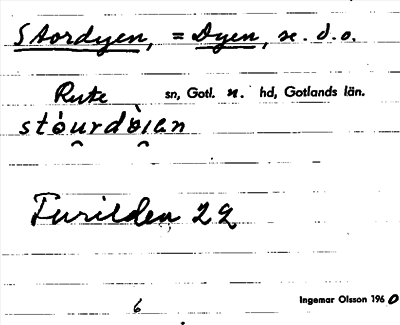 Stordyen, = Dyen, se. d.o.
Rute sn, Gotl. n. hd, Gotlands län.
stòurdòien
Furilden 29
Ingemar Olsson 1960
6